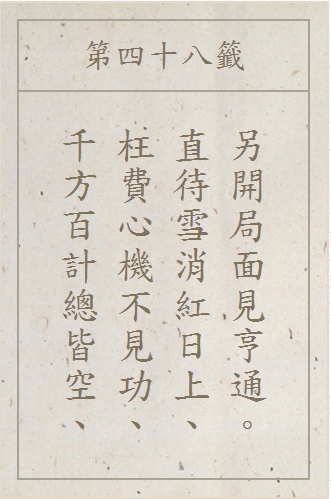 第四十八籤
千方百計總皆空、
枉費心機不見功、
直待雪消紅日上、
另開局面見亨通。